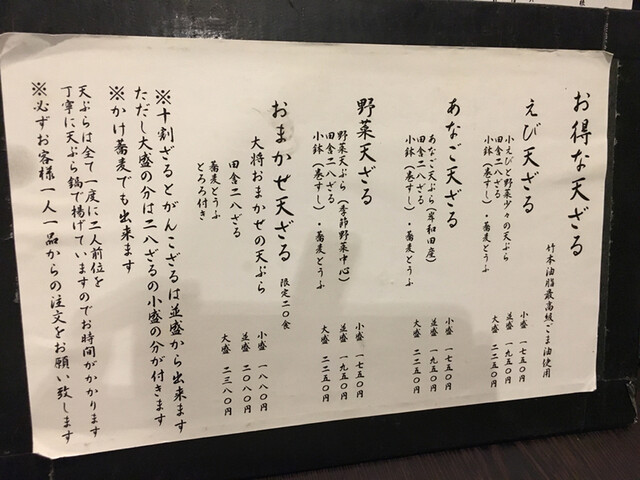 お得な天ざる
竹本油脂最高級ごま油使用
えび天ざる
小えびと野菜少々の天ぷら
田舎二八ざる
小鉢(巻すし)・蕎麦とうふ
小盛 一七五〇円
並盛 一九五〇円
大盛 二二五〇円
あなご天ざる
あなご天ぷら(岸和田産)
田舎二八ざる
小鉢(巻すし)・蕎麦とうふ
小盛 一七五〇円
並盛 一九五〇円
大盛 二二五〇円
野菜天ざる
野菜天ぷら(季節野菜中心)
田舎二八ざる
小鉢(巻すし)・蕎麦とうふ
小盛 一七五〇円
並盛 一九五〇円
大盛 二二五〇円
おまかせ天ざる 限定二〇食
大将おまかせの天ぷら
田舎二八ざる
蕎麦とうふ
とろろ付き
小盛 一八八〇円
並盛 二〇八〇円
大盛 二三八〇円
※十割ざるとがんこざるは並盛から出来ます
ただし大盛の分は二八ざるの小盛の分が付きます
※かけ蕎麦でも出来ます
天ぷらは全て一度に二人前位を
丁寧に天ぷら鍋で揚げていますのでお時間がかかります
※必ずお客様一人一品からの注文をお願い致します